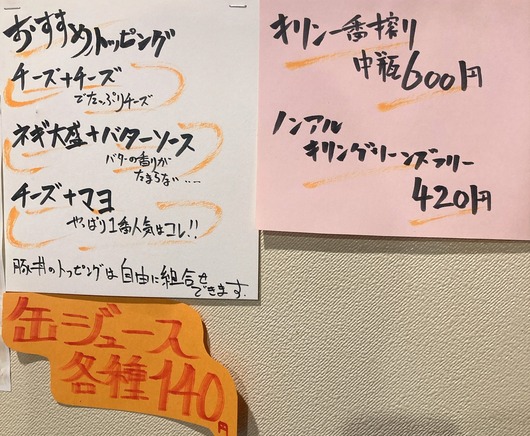 おすすめトッピング
チーズ+チーズ
でたっぷりチーズ
ネギ大盛+バターソース
バターの香りが
たまらない……
チーズ+マヨ
やっぱり1番人気はコレ!!
豚丼のトッピングは自由に組合せ
できます。
キリン一番搾り
中瓶600円
ノンアル
キリングリーンズフリー
420円
缶ジュース
各種140円